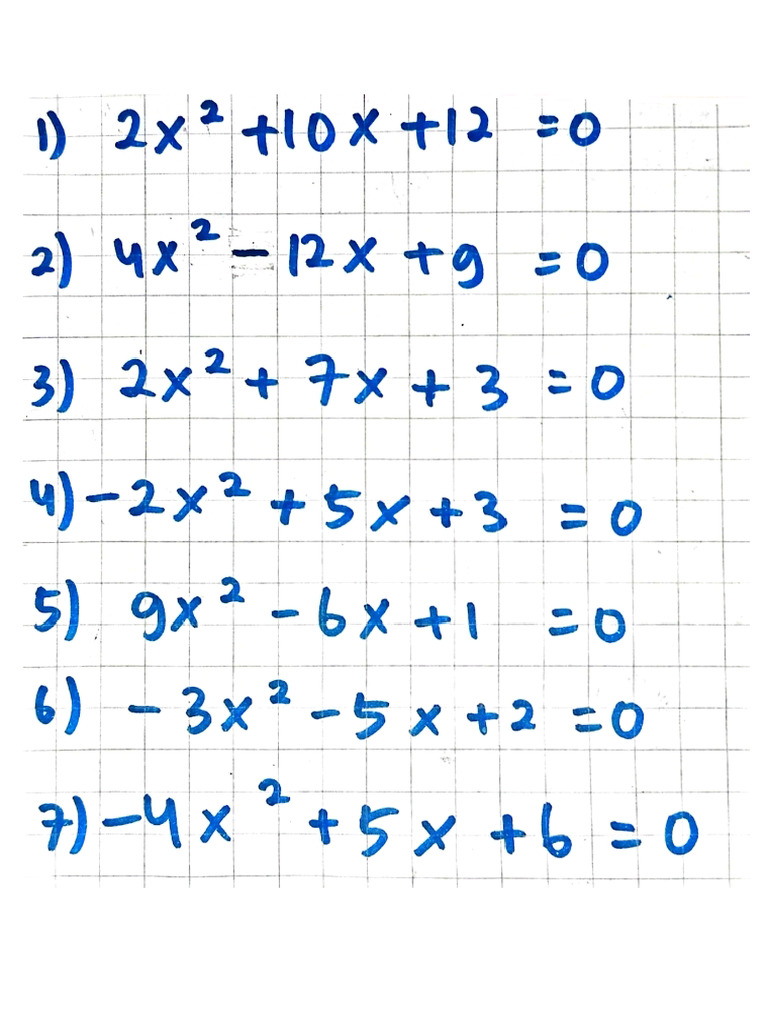 1) 2x² +10x +12 =0
2) 4x² - 12x + 9 =0
3) 2x² + 7x + 3 =0
4) -2x² + 5x + 3 =0
5) 9x² - 6x + 1 =0
6) - 3x² - 5x + 2 =0
7) -4x² + 5x + 6 =0